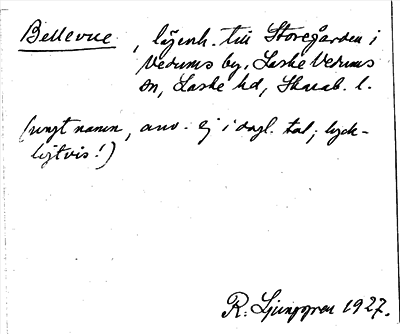 Bellevue, lägenh. till Storegården i
Vedums by, Laske Vedums
sn, Laske hd, Skarab. l.
(nytt namn, anv. ej i dagl. tal; lyck-
ligtvis!)
R. Ljunggren 1927.